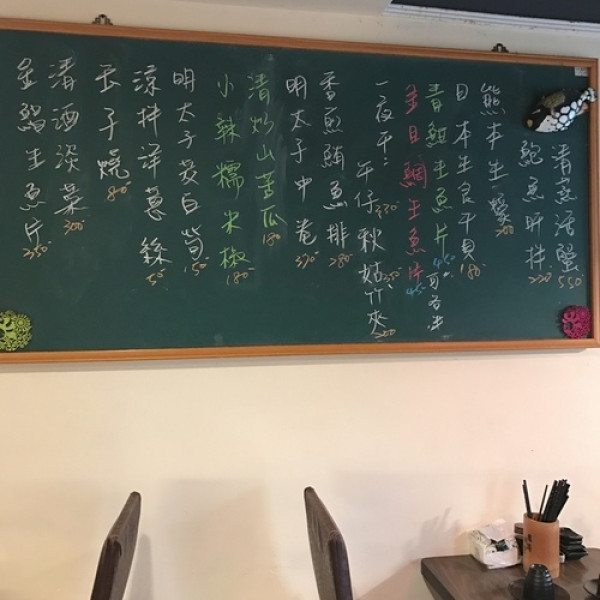 清蒸活蟹 550
鮑魚 拌 220
熊本生蠔 200
日本生食干貝 180
青魽生魚片 450 可各半
金目鯛生魚片 450
一夜干：午仔 330 秋姑 350 竹夾 200
香煎鮪魚排 280
明太子中卷 370
清炒山苦瓜 180
小辣糯米椒 180
明太子芝白筍 150
涼拌洋蔥絲 50
玉子燒 80
清酒淡菜 300
生魚片 350